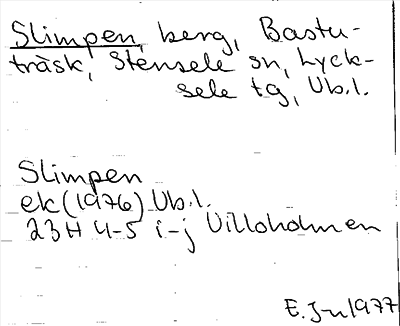 Slimpen, berg, Bastu-
träsk, Stensele sn, Lyck-
sele tg, Vb.l.
Slimpen
ek (1976) Vb.l.
23H 4-5 i-j Villoholmen
E. Jn 1977